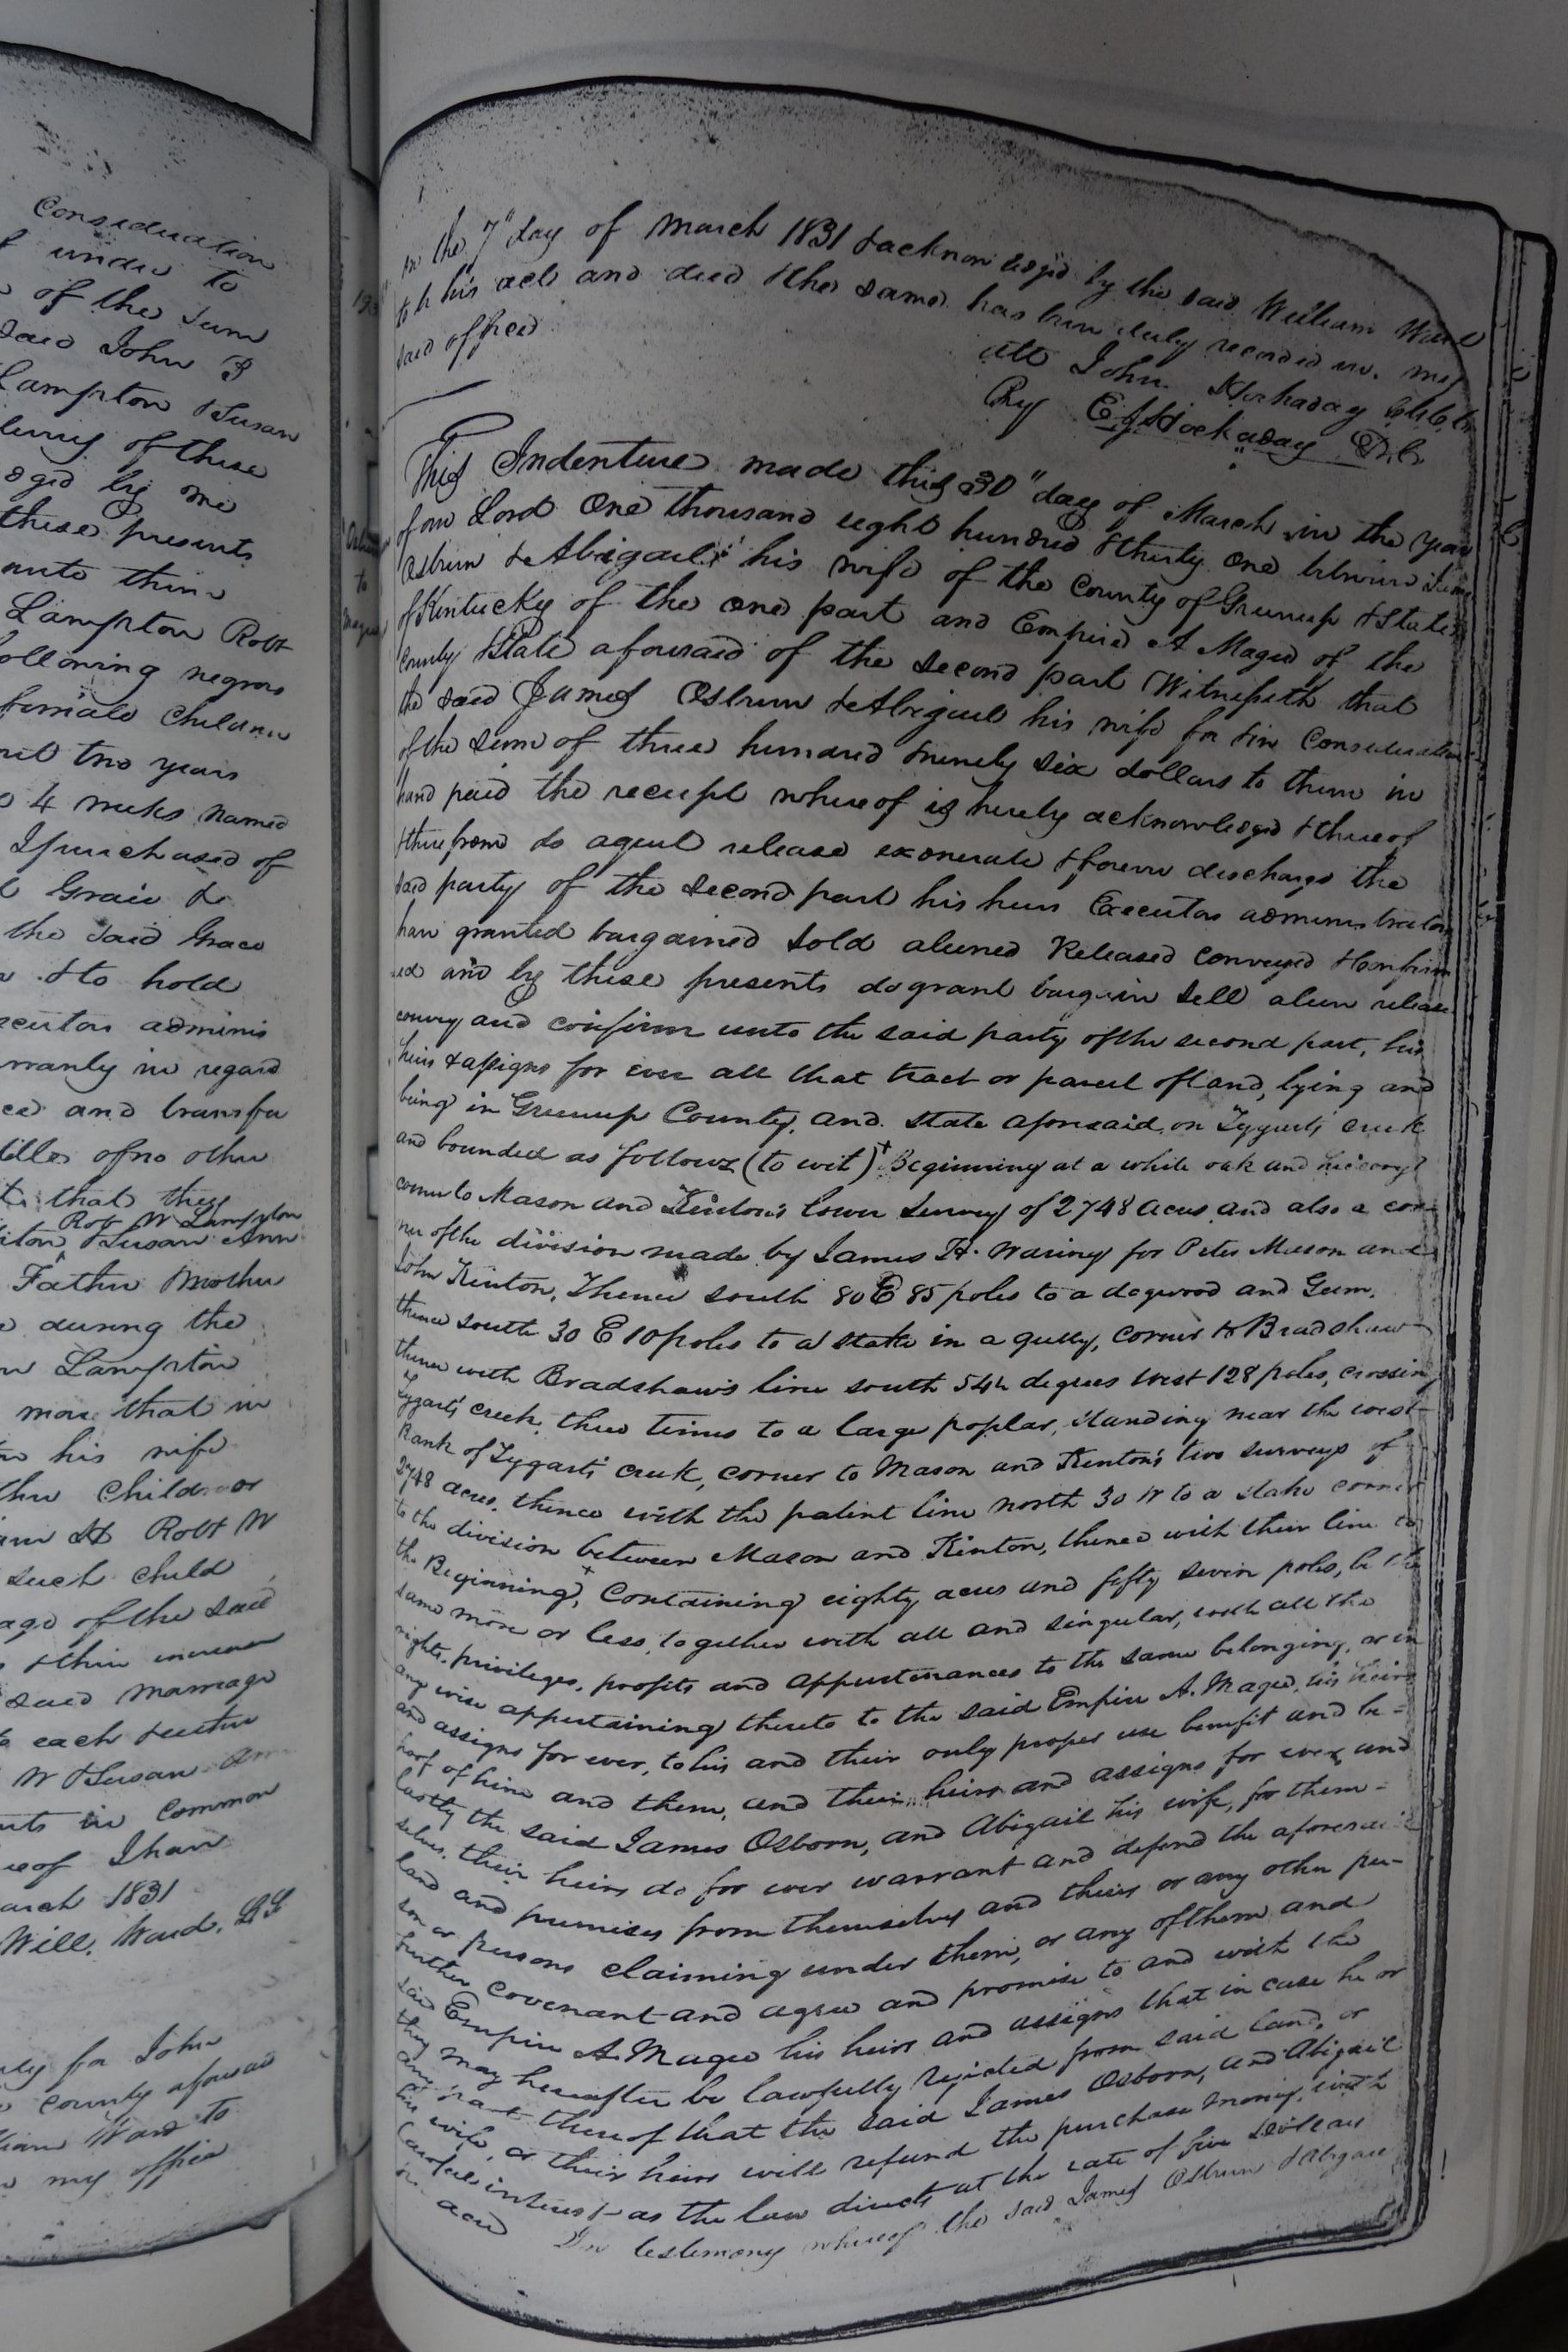 Consideration
under to
of the Sum
said John B
Lampton & Susan
of these
by me
these presents
unto them
Lampton Robt
following negroes
female Children
two years
4 weeks named
I purchased of
Grace &
the said Grace
& to hold
adminis
in regard
and transfer
of no other
that they
Robt W Lampton
& Susan Ann
Father Mother
during the
Lampton
more that in
his wife
Child or
Robt W
such child
of the said
& their increase
said marriage
each
W & Susan Ann
in common
I have
March 1831
Will. Ward. LS
for John
County aforesaid
Ward to
my office
on the 7" day of March 1831 & acknowledged by the said William Ward
to b his act and deed & the same has been duly recorded in my
said office
att John Hockaday
By E Hockaday D.C.
to
This Indenture made this 30" day of March in the year
of our Lord One thousand eight hundred & thirty one between James
Osbrun & Abigail his wife of the County of Greenup & State
of Kentucky of the one part and Empire A Magee of the
County & State aforesaid of the Second part Witnesseth that
the said James Osbrun & Abigail his wife for & in Consideration
of the sum of three hundred & ninety six dollars to them in
hand paid the receipt whereof is hereby acknowledged & thereof
& therefrom do aquit release exonerate & forever discharge the
said party of the second part his heirs Executors administrators
have granted bargained sold aliened Released conveyed & Confirm
ed and by these presents do grant bargain sell alien release
convey and confirm unto the said party of the second part, his
heirs & assigns for ever all that tract or parcel of land, lying and
being in Greenup County, and state aforesaid, on Tygarts creek
and bounded as follows (to wit) + Beginning at a white oak and hiccory
corner to Mason and Kenton's lower survey of 2748 acres and also a cor-
ner of the division made by James H. Waring for Peter Mason and
John Kenton, Thence south 80 E 85 poles to a dogwood and Gum,
thence south 30 E 10 poles to a stake in a gully, corner to Bradshaw
thence with Bradshaw's line south 54½ degrees West 128 poles, crossing
Tygarts creek, three times to a large poplar, standing near the west
Bank of Tygarts creek, corner to Mason and Kenton's two surveys of
2748 acres. thence with the patent line north 30 W to a stake corner
to the division between Mason and Kenton, thence with their line to
the Beginning, + Containing eighty acres and fifty seven poles, be the
same more or less, together with all and singular, with all the
rights, privileges, profits and appurtenances to the same belonging, or in
any wise appertaining thereto to the said Empire A. Magee, his heirs
and assigns for ever, to his and their only proper use benefit and be-
hoof of him and them, and their heirs and assigns for ever, and
lastly the said James Osborn, and Abigail his wife, for them-
selves, their heirs do for ever warrant and defend the aforesaid
land and premises from themselves and theirs or any other per-
son or persons claiming under them, or any of them and
further covenant and agree and promise to and with the
said Empire A. Magee his heirs and assigns that in case he or
they may hereafter be lawfully evicted from said land, or
any part thereof that the said James Osborn, and Abigail
his wife, or their heirs will refund the purchase money, with
lawful interest as the law directs at the rate of five dollars
acre
In testimony whereof the said James Osbrun & Abigail